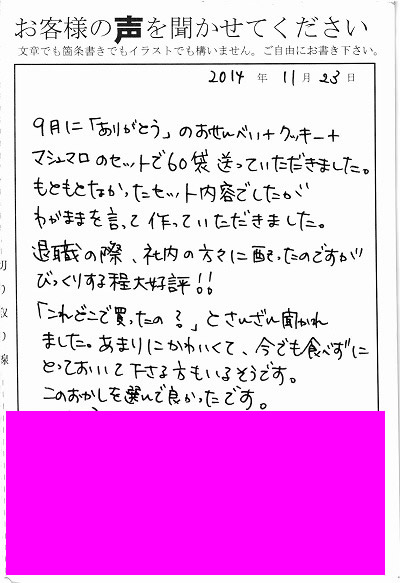 お客様の声を聞かせてください
文章でも箇条書きでもイラストでも構いません。ご自由にお書き下さい。
2014 年 11 月 23 日
9月に「ありがとう」のおせんべい+クッキー+
マシュマロのセットで60袋送っていただきました。
もともとなかったセット内容でしたが
わがままを言って作っていただきました。
退職の際、社内の方々に配ったのですが
びっくりする程大好評!!
「これどこで買ったの?」とさいさい聞かれ
ました。あまりにかわいくて、今でも食べずに
とっておいて下さる方もいるそうです。
このおかしを選んで良かったです。
切り取り線